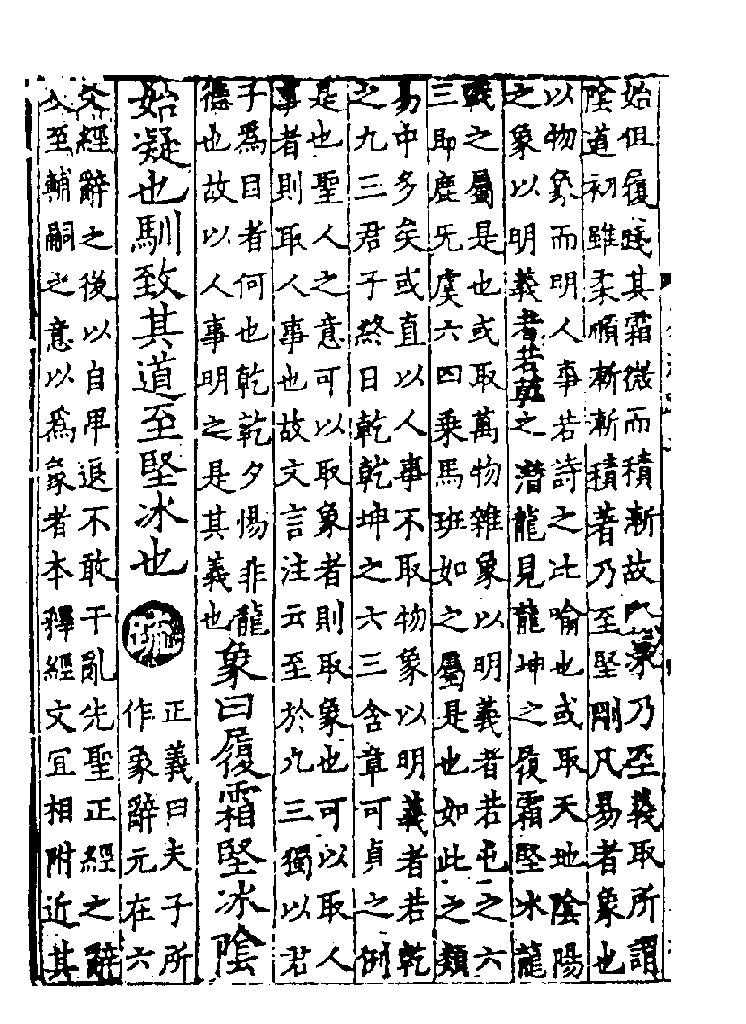 始但履踐其霜微而積漸故冰乃至義取所謂
陰道初雖柔順漸漸積著乃至堅剛凡易者象也
以物象而明人事若詩之比喻也或取天地陰陽
之象以明義者若乾之潛龍見龍坤之履霜堅冰龍
戰之屬是也或取萬物雜象以明義者若屯之六
三即鹿无虞六四乘馬班如之屬是也如此之類
易中多矣或直以人事不取物象以明義者若乾
之九三君子終日乾乾坤之六三含章可貞之例
是也聖人之意可以取象者則取象也可以取人
事者則取人事也故文言注云至於九三獨以君
子爲目者何也乾乾夕惕非龍
德也故以人事明之是其義也
象曰履霜堅冰陰
始凝也馴致其道至堅冰也
疏
正義曰夫子所
作象辭元在六
爻經辭之後以自卑退不敢干亂先聖正經之辭
至輔嗣之意以爲象者本釋經文宜相附近其